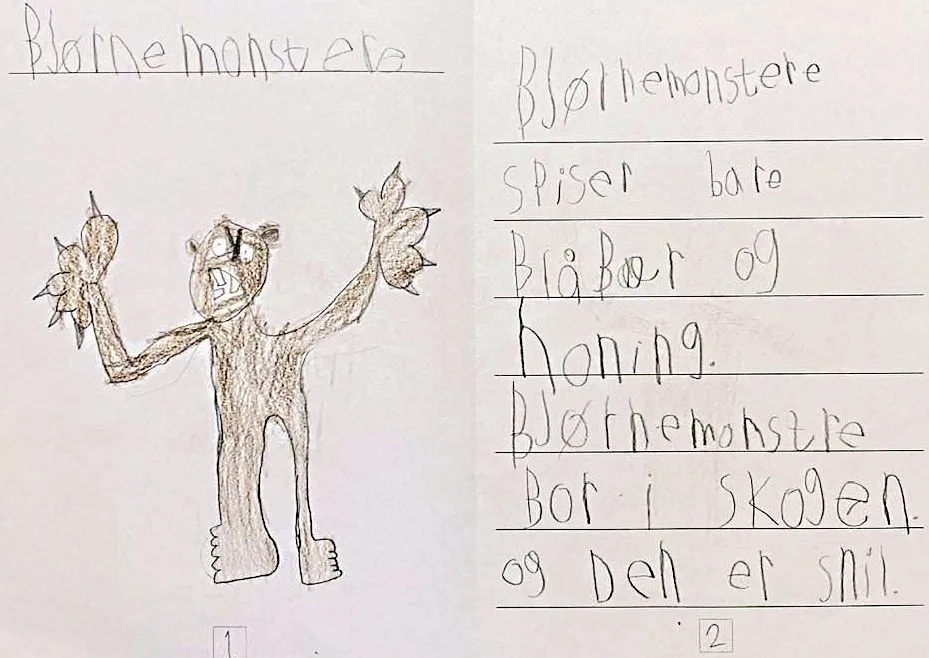 Bjørnemonstere
1
Bjørnemonstere
spiser bare
Blåbær og
honing.
Bjørnemonstre
Bor i skogen.
og Den er snil.
2